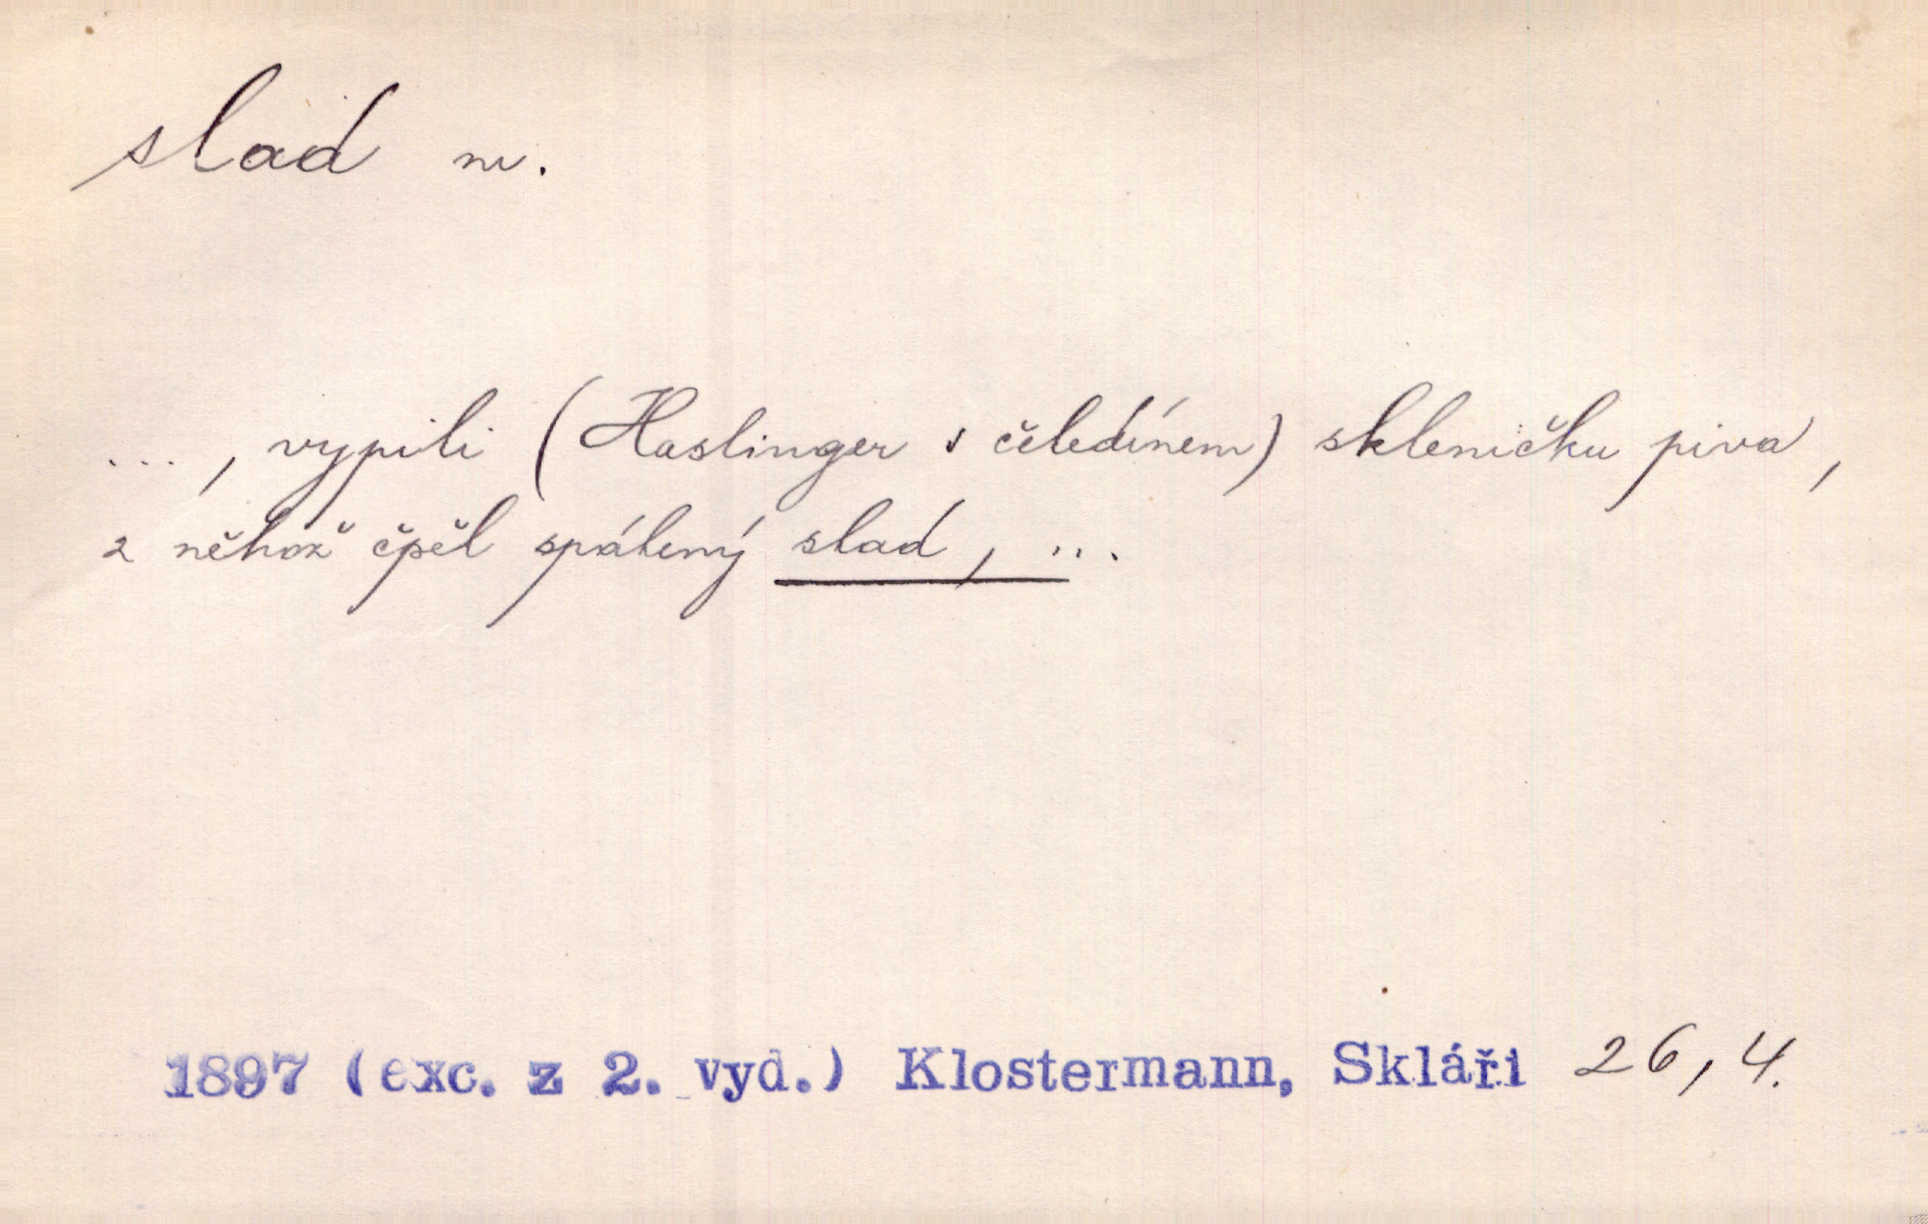 slad m.
..., vypili (Haslinger s čeledínem) skleničku piva,
z něhož čpěl spálený slad, ...
1897 (exc. z 2. vyd.) Klostermann, Skláři 26, 4.